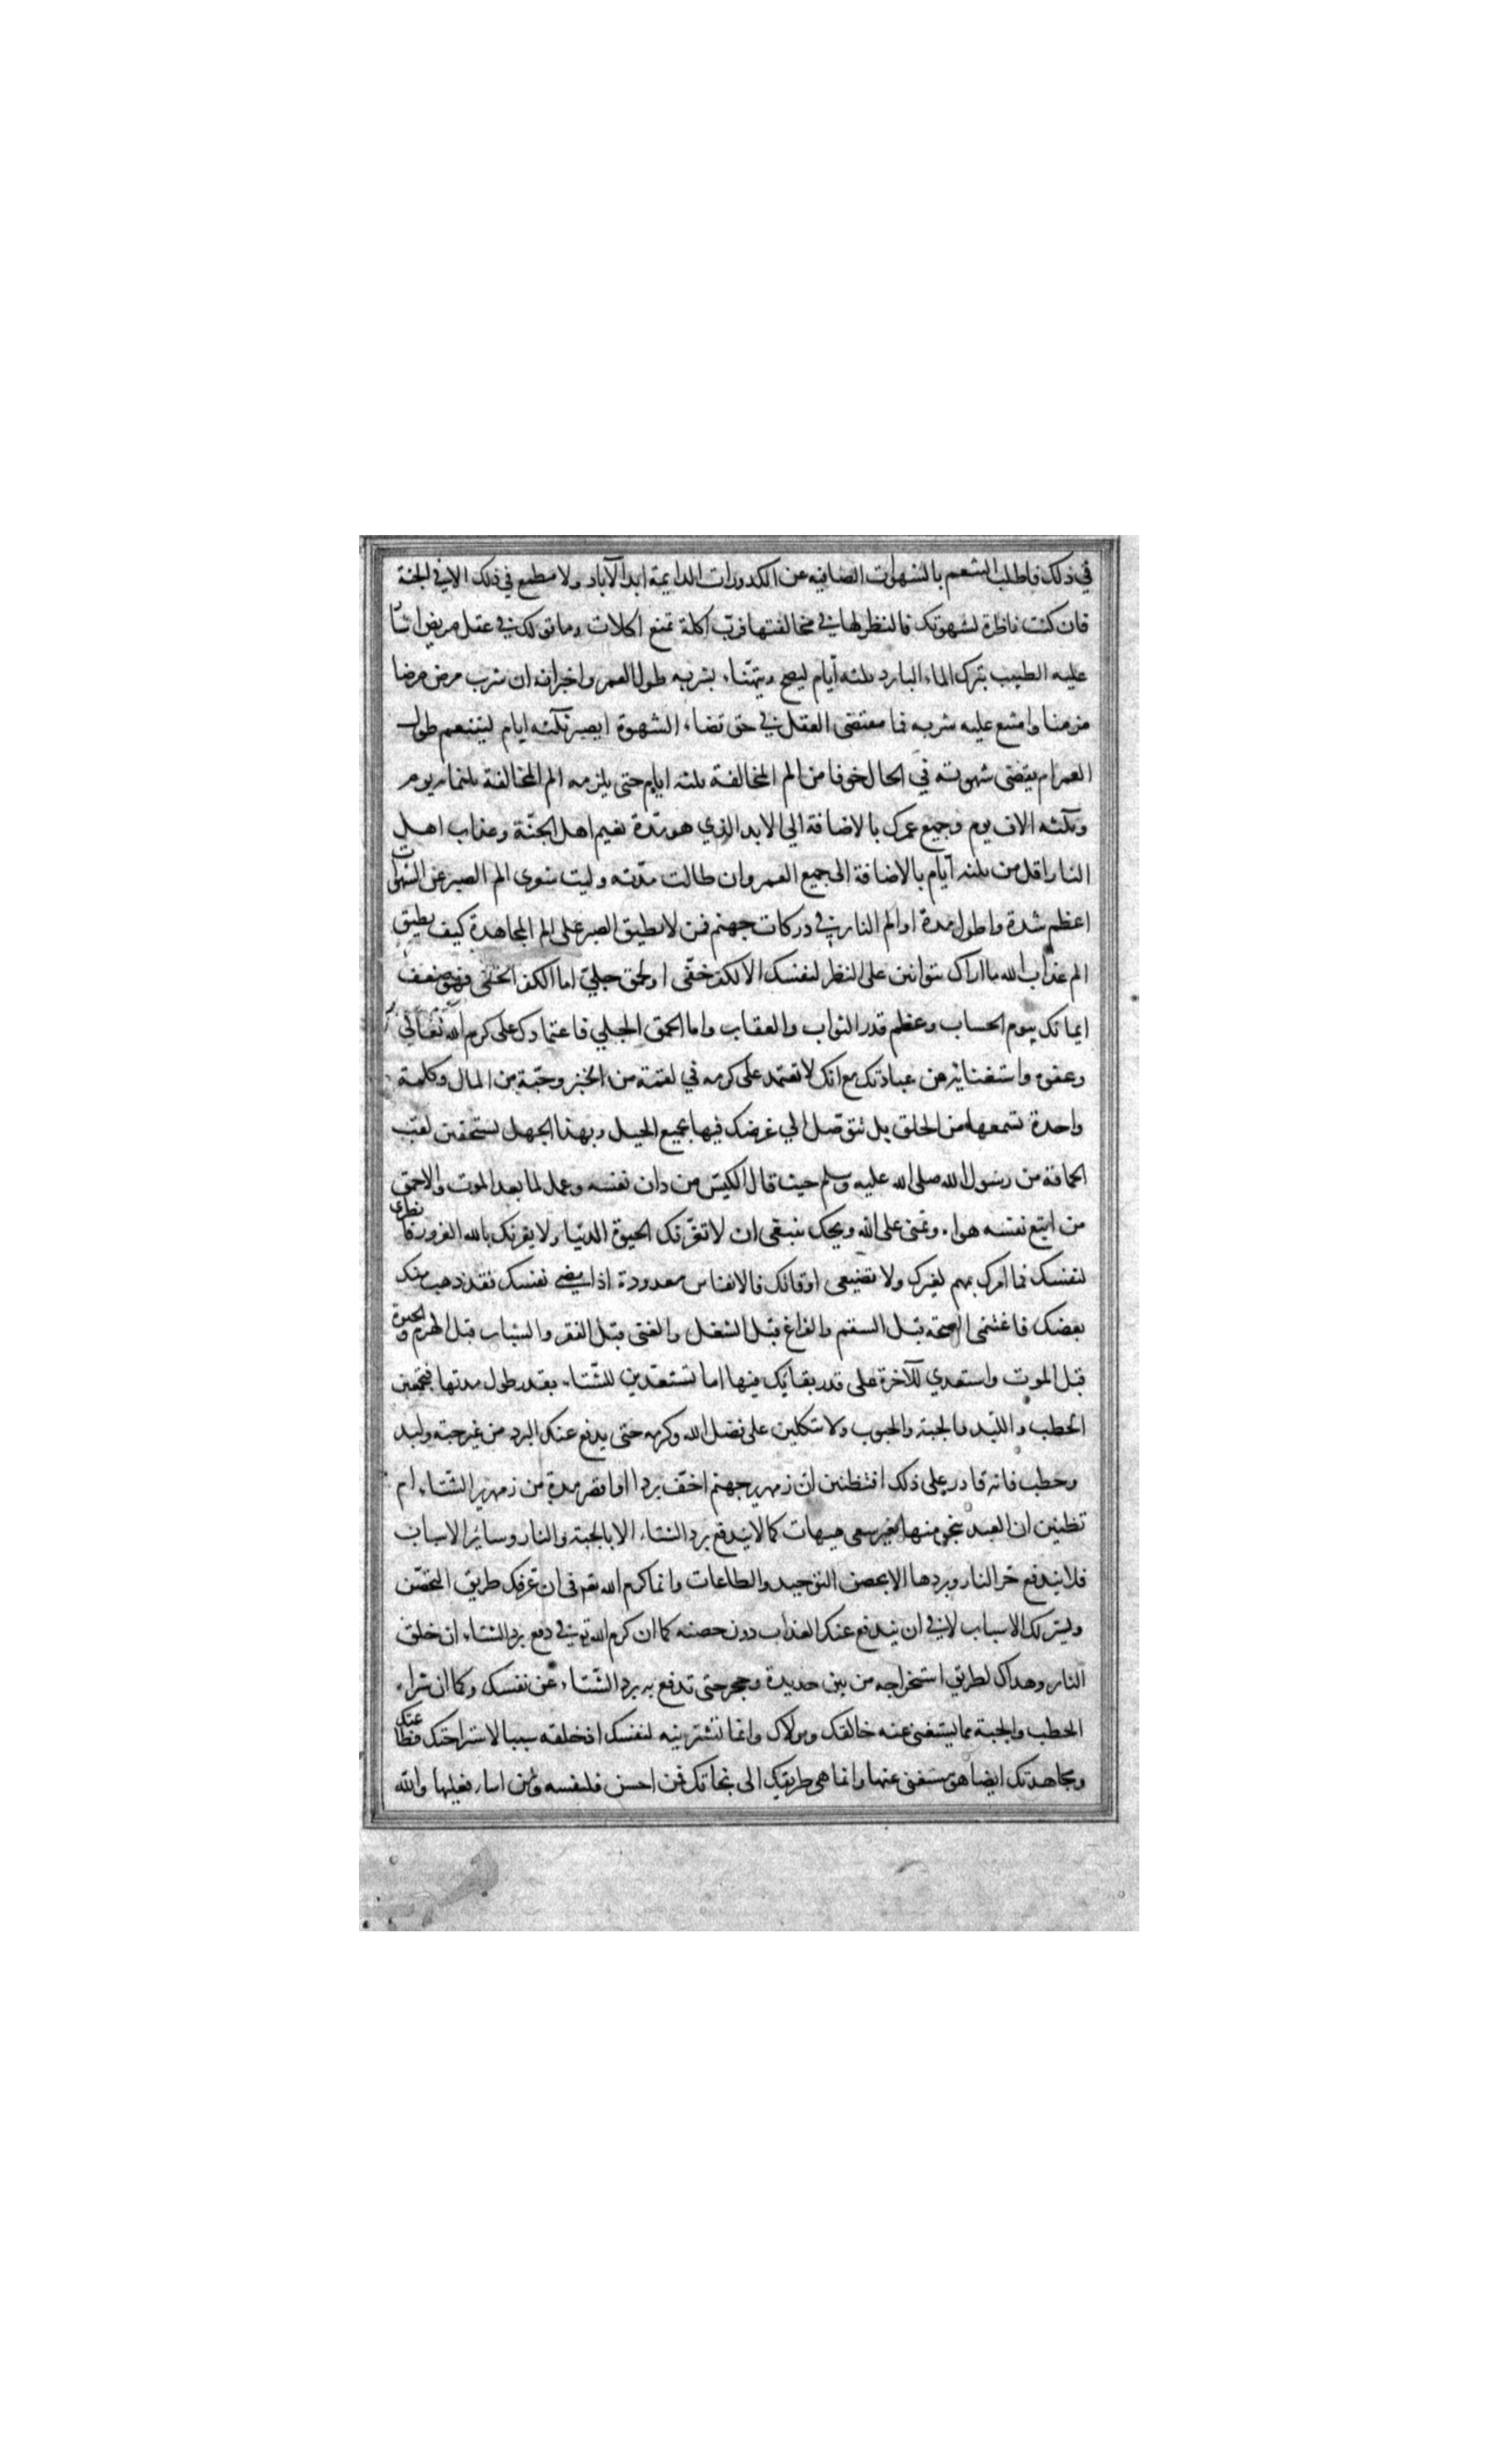 في ذلك فاطلب التنعم بالشهوات الصافيه عن الكدورات الدايمة ابد الآباد ولا مطمع في ذلك الا في الجنة
فان كنت ناظرة لشهوتك فالنظر لها في مخالفتها فرب اكلة تمنع اكلات وما قولك في عقل مريض اشار
عليه الطبيب بترك الماء البارد ثلثه أيام ليصح ويتهنا بشربه طول العمر واخبر انه ان شرب مرض مرضا
مزمنا وامتنع عليه شربه فما مقتضى العقل في حق قضاء الشهوة ايصبر ثلثه ايام ليتنعم طول
العمر ام يقضى شهوته في الحال خوفا من الم المخالفة ثلثه ايام حتى يلزمه الم المخالفة ثلثمايه يوم
وثلثه الاف يوم وجميع عمرك بالاضافة الي الابد الذي هو مدة نعيم اهل الجنة وعذاب اهل
النار اقل من ثلثه أيام بالاضافة الى جميع العمر وان طالت مدته وليت شعرى الم الصبر عن الشهوات
اعظم شدة واطول مدة او الم النار في دركات جهنم فمن لا يطيق الصبر على الم المجاهدة كيف يطيق
الم عذاب الله ما اراك تتوانين على النظر لنفسك الا لكفر خفى او لحمق جلي اما الكفر الخفى فهو ضعف
ايمانك بيوم الحساب وعظم قدر الثواب والعقاب واما الحمق الجلي فاعتمادك على كرم الله تعالي
وعفوه واستغنائه عن عبادتك مع انك لا تعتمد على كرمه في لقمة من الخبز وحبة من المال وكلمة
واحدة تسمعها من الخلق بل تتوصل الي غرضك فيها بجميع الحيل وبهذا الجهل تستحقين لقب
الحماقة من رسول الله صلى الله عليه وسلم حيث قال الكيس من دان نفسه وعمل لما بعد الموت والاحمق
من اتبع نفسه هواه وتمنى على الله ويحك ينبغى ان لا تغرنك الحيوة الدنيا ولا يغرنك بالله الغرور فانظرى
لنفسك فما امرك بمهم لغيرك ولا تضيعى اوقاتك فالانفاس معدودة اذا مضى نفسك فقد ذهب منك
بعضك فاغتنمى الصحة قبل السقم والفراغ قبل الشغل والغنى قبل الفقر والشباب قبل الهرم والحيوة
قبل الموت واستعدي للآخرة على قدر بقائك فيها اما تستعدين للشتاء بقدر طول مدتها فتجمعين
الحطب واللبد والجبة والحبوب ولا تتكلين على فضل الله وكرمه حتى يدفع عنك البرد من غير جبة ولبد
وحطب فانه قادر على ذلك افتظنين ان زمهرير جهنم اخف بردا او اقصر مدة من زمهرير الشتاء ام
تظنين ان العبد ينجو منها بغير سعى هيهات كما لا يندفع برد الشتاء الا بالجبة والنار وساير الاسباب
فلا يندفع حر النار وبردها الا بحصن التوحيد والطاعات وانما كرم الله تعم فى ان عرفك طريق التحصن
ويسر لك الاسباب لا في ان يندفع عنك العذاب دون حصنه كما ان كرم الله تع في دفع برد الشتاء ان خلق
النار وهداك لطريق استخراجه من بين حديدة وحجر حتى تدفع به برد الشتاء عن نفسك وكما ان شراء
الحطب والجبة مما يستغنى عنه خالقك ومولاك وانما تشترينه لنفسك اذ خلقه سببا لاستراحتك فطاعتك
ومجاهدتك ايضا هو مستغنى عنها وانما هى طريقك الى نجاتك فمن احسن فلنفسه ومن اساء فعليها والله